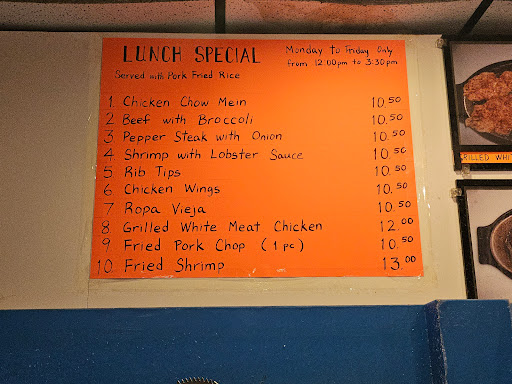 LUNCH SPECIAL
Monday to Friday Only
from 12:00pm to 3:30pm
Served with Pork Fried Rice
1 Chicken Chow Mein 10.50
2 Beef with Broccoli 10.50
3 Pepper Steak with Onion 10.50
4 Shrimp with Lobster Sauce 10.50
5 Rib Tips 10.50
6 Chicken Wings 10.50
7 Ropa Vieja 10.50
8 Grilled White Meat Chicken 12.00
9 Fried Pork Chop (1pc) 10.50
10. Fried Shrimp 13.00
RILLED WHIT